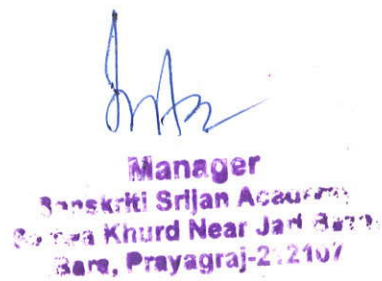 Manager
Sanskriti Srijan Academy
Khurd Near Jari
Bara, Prayagraj-212107